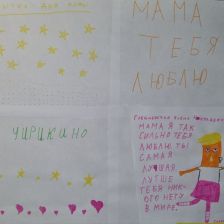 МАМА
ТЕБЯ
ЛЮБЛЮ
ЧИРИКИНО
МАМА Я ТАК
СИЛЬНО ТЕБЯ
ЛЮБЛЮ. ТЫ
САМАЯ
ЛУЧШАЯ
ЛУТШЕ
ТЕБЯ НИК-
ОГО НЕГО
В МИРЕ